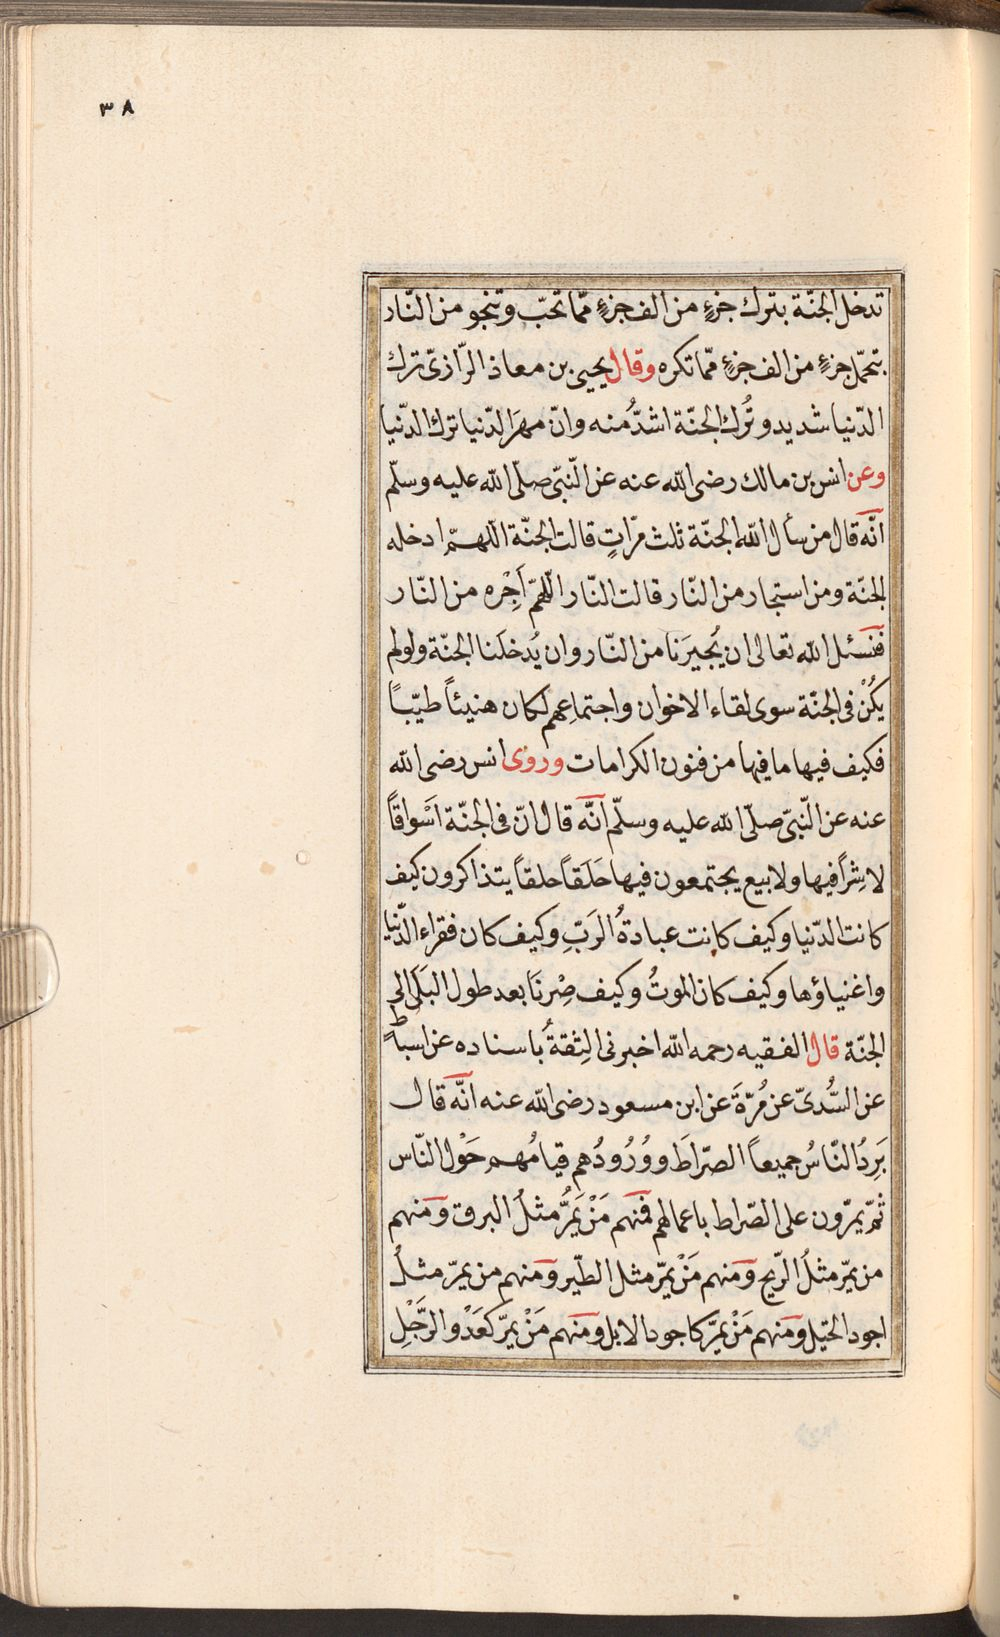 ٣٨
تدخل الجنّة بترك جزءٍ من الف جزءٍ ممّا تحبّ وتنجو من النّار
بتحمّل جزءٍ من الف جزءٍ ممّا تكره وقال يحيى بن معاذ الرّازىّ ترك
الدّنيا شديد وتُرك الجنّة اشدُّ منه وانّ مهرَ الدّنيا ترك الدّنيا
وعن انس بن مالك رضى الله عنه عن النّبىّ صلّى الله عليه وسلّم
انّه قال من سأل الله الجنّة ثلث مرّاتٍ قالت الجنّة اللهمّ ادخله
الجنّة ومن استجار من النّار قالت النّار اللّهمّ اَجِرْه من النّار
فنسئل الله تعالى ان يُجيرَنا من النّار وان يُدخلَنا الجنّة ولو لم
يكُنْ فى الجنّة سوى لقاء الاخوان واجتماعِهم لكان هنيئاً طيّباً
فكيف فيها ما فيها من فنون الكرامات وروى انس رضى الله
عنه عن النّبىّ صلّى الله عليه وسلّم انّه قال انّ فى الجنّة اَسْواقاً
لا شِراً فيها ولا بيع يجتمعون فيها حَلَقاً حلقاً يتذاكرون كيف
كانت الدّنيا وكيف كانت عبادةُ الرَبِّ وكيف كان فقراء الدّنيا
واغنياؤها وكيف كان الموتُ وكيف صِرْنَا بعد طول البَلَى الى
الجنّة قال الفقيه رحمه الله اخبرنى الثِقةُ باسناده عن اسباطٍ
عن السُّدىّ عن مُرّةَ عن ابن مسعود رضى الله عنه انّه قال
يَرِدُ النّاسُ جميعاً الصّراطَ ووُرُودُهم قيامُهم حَوْل النّاس
ثمّ يمرّون على الصّراط باعمالهم فمنهم مَنْ يَمُرُّ مثلُ البرق ومنهم
من يمرّ مثلُ الرّيح ومنهم مَنْ يمرّ مثل الطّير ومنهم من يمرّ مثلُ
اجود الخيل ومنهم مَنْ يمرّ كاجود الابل ومنهم مَنْ يمرّ كعَدْو الرَّجُلِ